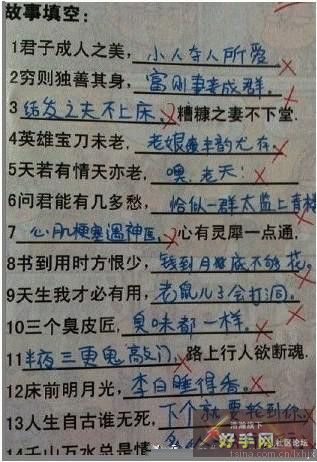 故事填空:
1君子成人之美,小人夺人所爱
2穷则独善其身,富则妻妾成群。
3结发之夫不上床,糟糠之妻不下堂.
4英雄宝刀未老,老娘风韵尤存。
5天若有情天亦老,噢,老天!
6问君能有几多愁,恰似一群太监上青楼
7心肌梗塞遇神医,心有灵犀一点通,
8书到用时方恨少,钱到月底不够花。
9天生我才必有用,老鼠儿子会打洞。
10三个臭皮匠,臭味都一样。
11半夜三更鬼敲门,路上行人欲断魂.
12床前明月光,李白睡得香。
13人生自古谁无死,下个就要轮到你.
14千山万水总是情
好手网
社区论坛